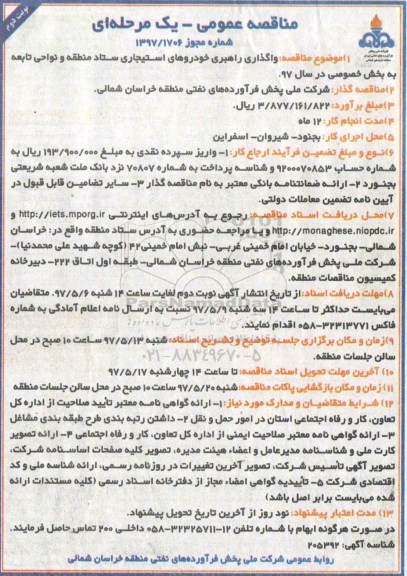 نوبت دوم
مناقصه عمومی - یک مرحله‌ای
شماره مجوز ۱۳۹۷/۱۷۰۶
۱)موضوع مناقصه: واگذاری راهبری خودروهای استیجاری ستاد منطقه و نواحی تابعه
به بخش خصوصی در سال ۹۷.
۲)مناقصه گذار: شرکت ملی پخش فرآورده‌های نفتی منطقه خراسان شمالی.
۳)مبلغ برآورد: ۳/۸۷۷/۱۶۱/۸۲۲ ریال.
۴)مدت انجام کار: ۱۲ ماه
۵)محل اجرای کار: بجنورد- شیروان- اسفراین
۶)نوع و مبلغ تضمین فرآیند ارجاع کار: ۱- واریز سپرده نقدی به مبلغ ۱۹۳/۹۰۰/۰۰۰ ریال به
شماره حساب ۹۲۰۰۰۷۰۸۵۳ و شناسه پرداخت به شماره ۷۰۸۰۷ نزد بانک ملت شعبه شریعتی
بجنورد ۲- ارائه ضمانتنامه بانکی معتبر به نام مناقصه گذار ۳- سایر تضامین قابل قبول در
آیین نامه تضمین معاملات دولتی.
۷)محل دریافت اسناد مناقصه: رجوع به آدرس‌های اینترنتی http://iets.mporg.ir و
http://monaghese.niopdc.ir و یا مراجعه حضوری به آدرس ستاد منطقه واقع در: خراسان
شمالی- بجنورد- خیابان امام خمینی غربی- نبش امام خمینی۴۲ (کوچه شهید علی محمدنیا)-
شرکت ملی پخش فرآورده‌های نفتی منطقه خراسان شمالی- طبقه اول اتاق ۲۲۲- دبیرخانه
کمیسیون مناقصات منطقه.
۸)مهلت دریافت اسناد: از تاریخ انتشار آگهی نوبت دوم لغایت ساعت ۱۴ شنبه ۹۷/۵/۶. متقاضیان
می‌بایست حداکثر تا ساعت ۱۴ سه شنبه ۹۷/۵/۹ نسبت به ارسال نامه اعلام آمادگی به شماره
فاکس ۳۲۳۱۳۷۷۱-۰۵۸ اقدام نمایند.
۹)زمان و مکان برگزاری جلسه توضیح و تشریح اسناد: شنبه ۹۷/۵/۱۳ ساعت ۱۰ صبح در محل
سالن جلسات منطقه.
۰۲۱-۸۸۳۴۹۶۷۰-۵
۱۰) آخرین مهلت تحویل اسناد مناقصه: تا ساعت ۱۴ چهارشنبه ۹۷/۵/۱۷
۱۱)زمان و مکان بازگشایی پاکات مناقصه: شنبه ۹۷/۵/۲۰ ساعت ۱۰ صبح در محل سالن جلسات منطقه
۱۲) شرایط متقاضیان و مدارک مورد نیاز: ۱- ارائه گواهی نامه معتبر تأیید صلاحیت از اداره کل
تعاون، کار و رفاه اجتماعی استان در امور حمل و نقل ۲- داشتن رتبه بندی طرح طبقه بندی مشاغل
۳- ارائه گواهی نامه معتبر صلاحیت ایمنی از اداره کل تعاون، کار و رفاه اجتماعی ۴- ارائه تصویر
کارت ملی و شناسنامه مدیرعامل و اعضاء هیئت مدیره، تصویر کلیه صفحات اساسنامه شرکت،
تصویر آگهی تأسیس شرکت، تصویر آخرین تغییرات در روزنامه رسمی، ارائه شناسه ملی و کد
اقتصادی شرکت ۵- تأییدیه گواهی امضاء مجاز از دفترخانه اسناد رسمی (کلیه مستندات ارائه
شده می‌بایست برابر اصل باشد)
۱۳) مدت اعتبار پیشنهاد: نود روز از آخرین تاریخ تحویل پیشنهاد.
در صورت هرگونه ابهام با شماره تلفن ۱۲-۳۲۳۲۵۷۱۱-۰۵۸ داخلی ۲۰۰ تماس حاصل فرمایند.
شناسه آگهی: ۲۰۵۳۹۲
روابط عمومی شرکت ملی پخش فرآورده‌های نفتی منطقه خراسان شمالی